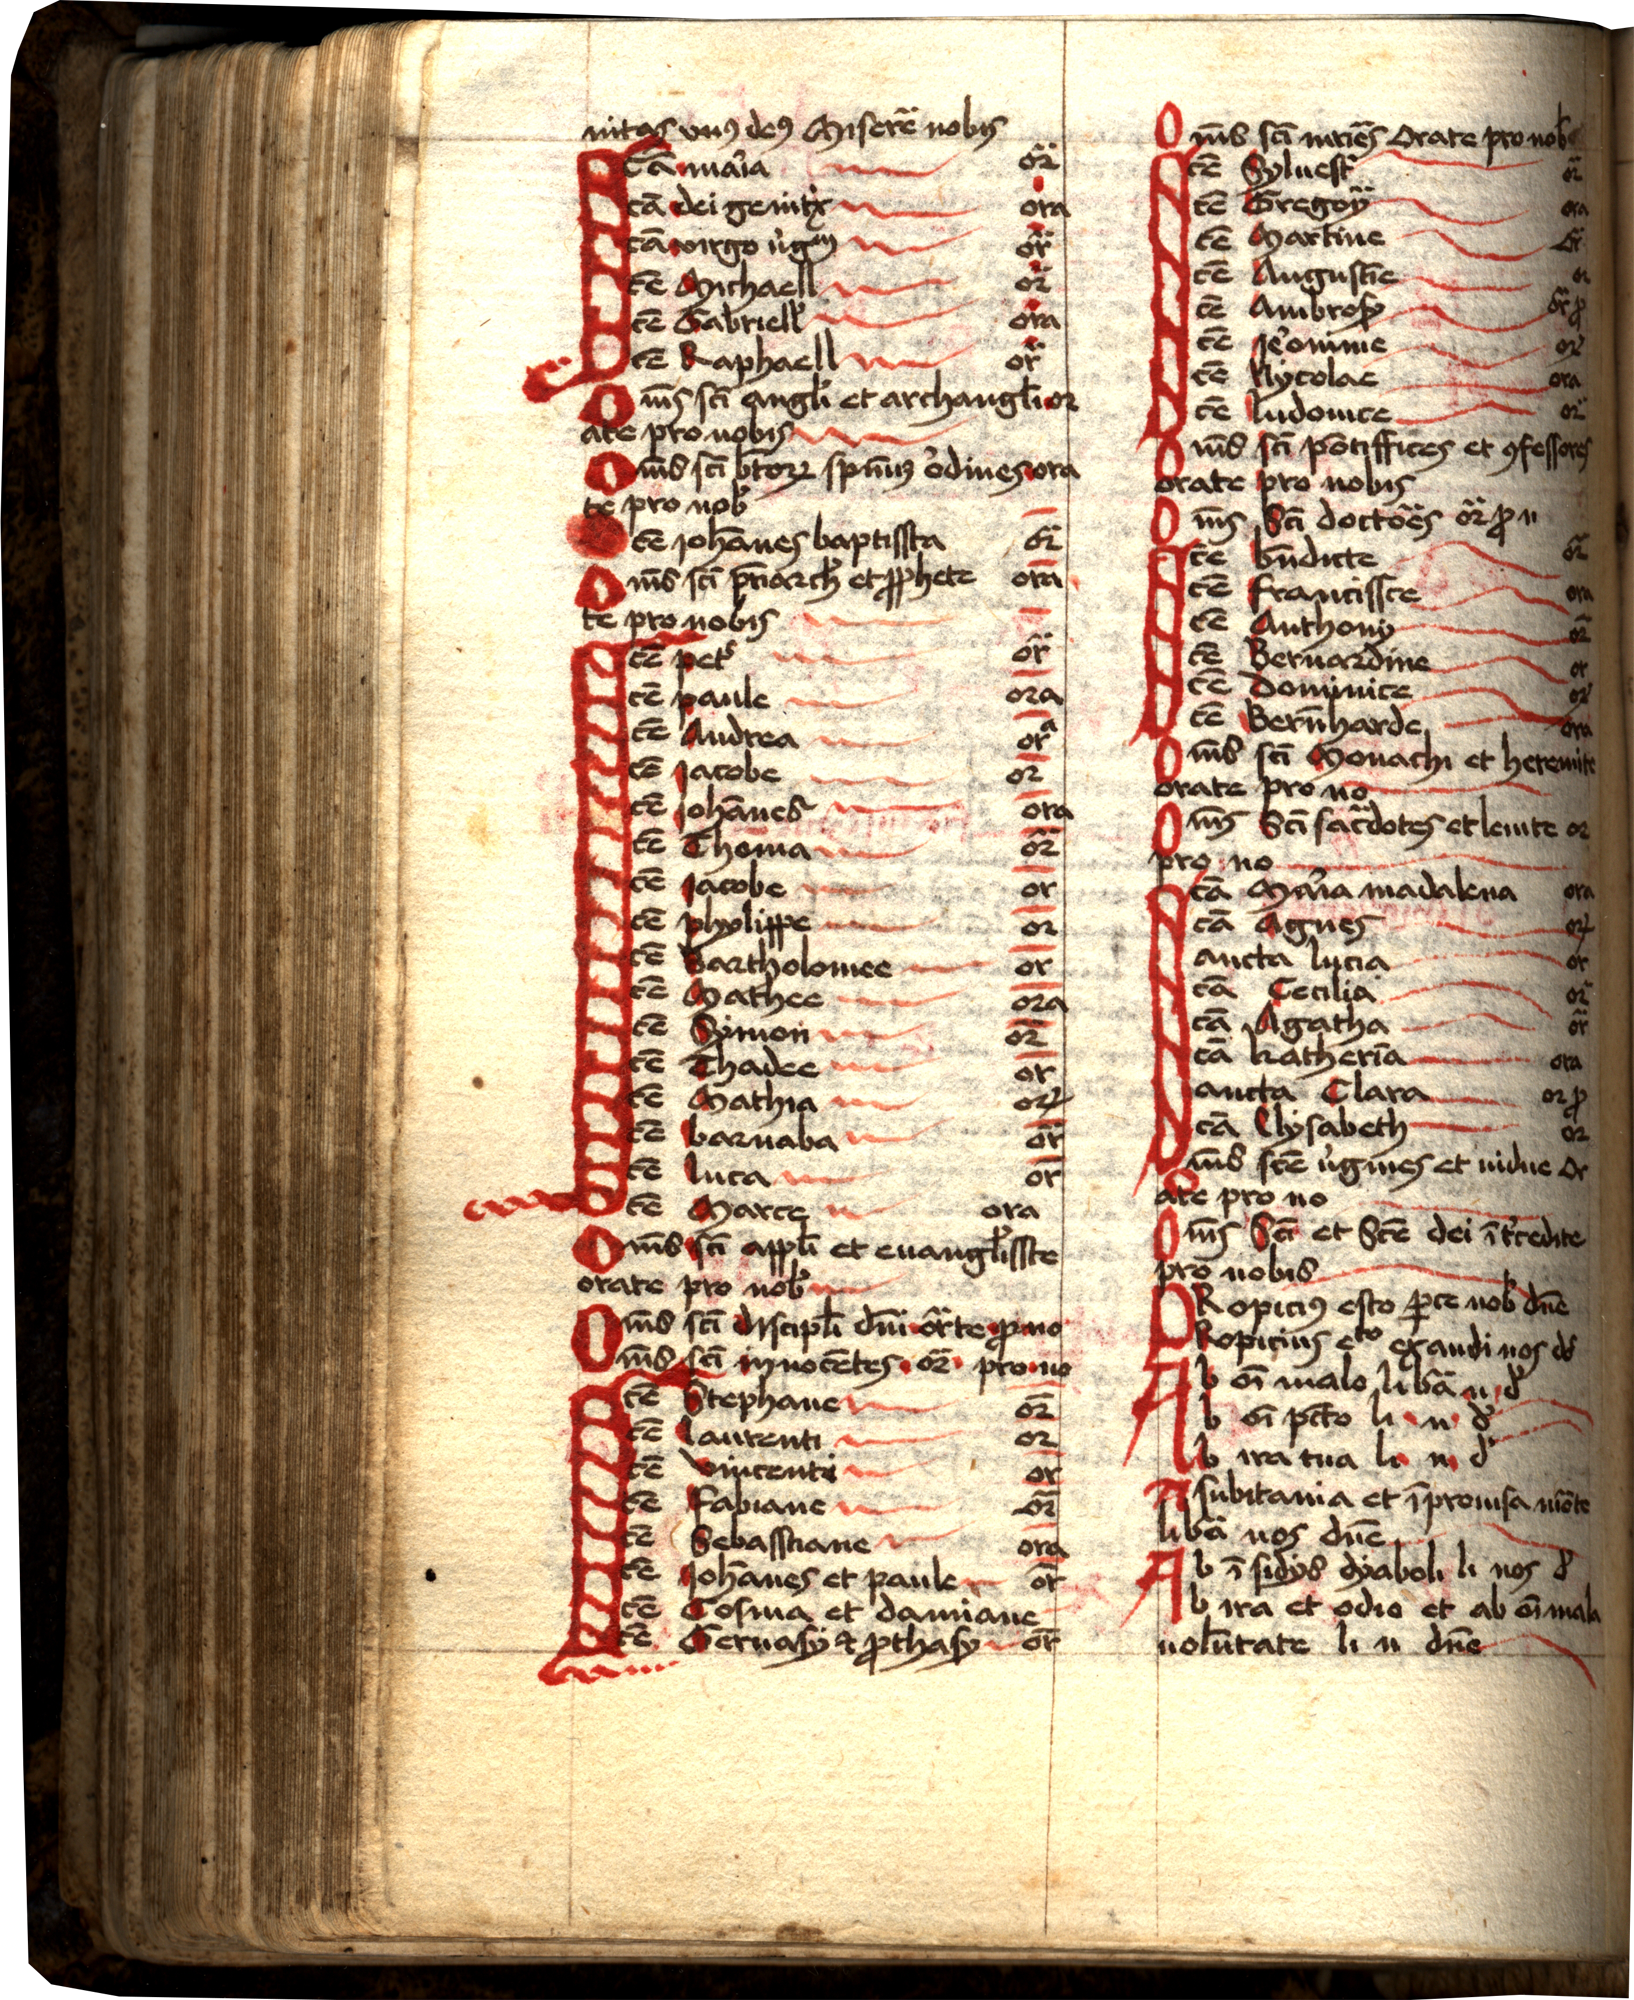 nitas vnꝰ deꝰ Miserē nobis
Scā maͬia or̄
Scā dei genitx̍ ora
Scā virgo v̍gm̄ or̄
Scē Michaell or̄
Scē Gabriell ora
Scē Raphaell or̄
Om̄s sc̄i angli et archangli or
ate pro nobis
Om̄s sc̄i b̄torꝝ sp̄nuꝰ o̍dines ora
te pro nob̍
Scē Joh̄anes baptissta or̄
Om̄s sc̄i pr̄iarch̍ et ꝓphete ora
te pro nobis
Scē pet̍ or̄
Scē paule ora
Scē Andrea orᵃ
Scē Jacobe or
Scē Joh̄anes ora
Scē Thoma or̄
Scē Jacobe or
Scē phylippe or
Scē Bartholomee or
Scē Mathee ora
Scē Symon or̄
Scē Thadee or
Scē Mathia or
Scē barnaba or̄
Scē luca or
Scē Marce ora
Om̄s sc̄i appl̄i et euangl̍isste
orate pro nob̍
Om̄s sc̄i discipl̄i dn̄i or̄te ꝓ no
Om̄s sc̄i innocētes or̄ pro no
Scē Stephane or̄
Scē laurenti or
Scē vincenti or
Scē Fabiane or̄
Scē Sebasstiane ora
Scē Joh̄anes et paule or̄
Scē Cosma et damiane
Scē Geruasy ⁊ ꝓthasy or̄
Om̄s sc̄i mr̄ies Orate pro nob̍
Scē Syluest̍ or̄
Scē Gregoy̍ ora
Scē Martine or̄
Scē Augustīe or
Scē Ambrosy or̄ ꝓ
Scē Je̍onime or̍
Scē Nycolae ora
Scē ludouice or̍
Om̄s sc̄i pōtiffices et ꝯfessores
orate pro nobis
Om̄s Sc̄i doctōes or̄ ꝓ n
Scē bn̄dicte or̄
Scē francissce ora
Scē Anthony or̄
Scē Bernardine or
Scē Dominice or̍
Scē Bern̄harde ora
Om̄s sc̄i Monachi et heremite
orate pro no
Om̄s Sc̄i sac̄dotes et leuite or
pro no
Scā Maͬia madalena ora
Scā Agnes or
Sancta lucia or
Scā Cecilia or̄
Scā Agatha or̄
Scā katherīa ora
Sancta Clara or ꝓ
Scā Elysabeth or
Om̄s scē v̍gines et vidue Or
ate pro no
Om̄s Sc̄i et Scē dei īt̍cedite
pro nobis
PRopiciꝰ esto ꝑce nob̍ dn̄e
PRopicius eto exaudi nos d̍
Ab oī malo lib̄a n d̍
Ab oī pc̄to li n d̍
Ab ira tua li n d̍
A subitania et īprouisa mōte
lib̄a nos dn̄e
Ab īsidys dyaboli li nos d̍
Ab ira et odio et ab oī mala
volūtate li n dn̄e